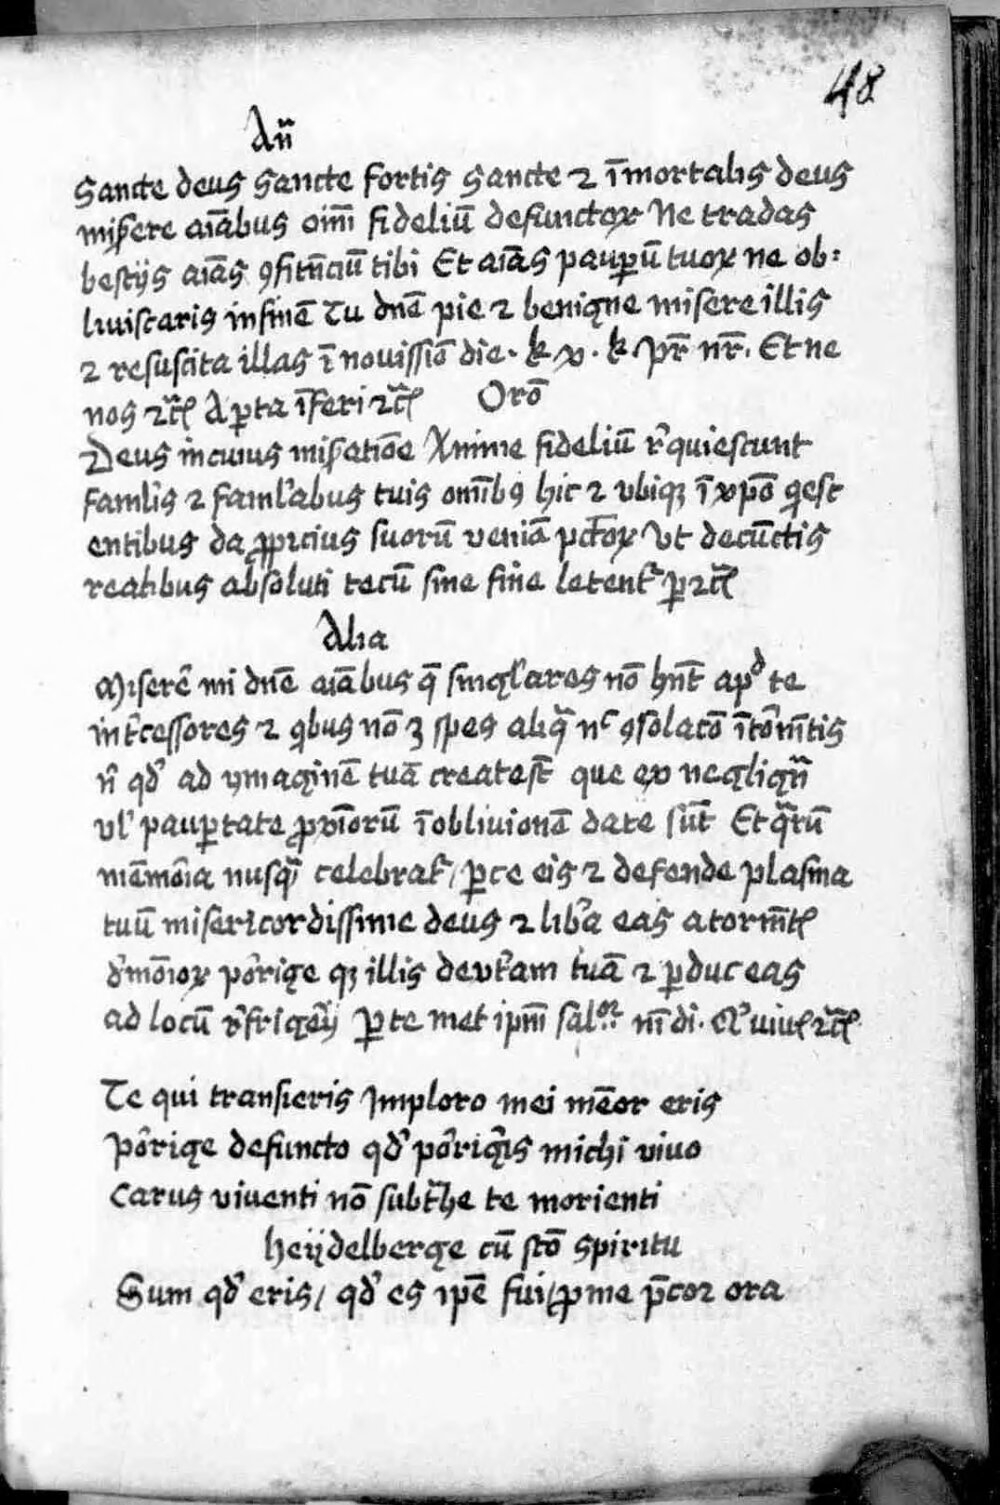 48
An̄
Sancte deus Sancte fortis Sancte ⁊ īmortalis deus
mis̕ere aīabus oīm̄ fideliū defunctoꝝ Ne tradas
bestijs aīas ꝯfitēciū tibi Et aīas paup̲ū tuoꝝ ne ob⸗
liuiscaris in finē Tu dnē pie ⁊ benigne misere illis
⁊ resuscita illas ī nouissiō die · k̄ x̄ · k̄ · pr̄ nr̄ · Et ne
nos ⁊c̄ A p̲ta īferi ⁊c̄ Orō
Deus in cuius mis̕atiōe Anime fideliū r̕quiescunt
famĺis ⁊ famĺabus tuis om̄ibꝰ hic ⁊ vbiqꝫ ī xp̄o q̇esc
entibus da ꝓpicius suorū veniā pct̄oꝝ Vt de cūctis
reatibus absoluti tecū sine fine letent᷑ ꝑ ⁊c̄
Alia
Miserē mi dnē aīabus q̄ singĺares nō hn̄t apᵈ te
int̕cessores ⁊ q̇bus nō ꝫ spes aliq̄ nᶜ ꝯsolacō ī torm̄tis
n̄ qd̕ ad ymaginē tuā create sт̄ que ex neglign̄
vĺ paup̲tate ꝓxīorū ī obliuionē date sūt Et q̄rū
mēmōia nusq̄ celebrat᷑ / ꝑce eis ⁊ defende plasma
tuū misericordissime deus ⁊ lib̕a eas a torm̄t̕
d̕mōioꝝ pōrige qꝫ illis dext̕am tuā ⁊ ꝑduc eas
ad locū r̕frigēij ꝑ te met ipm̄ salᵒʳ m̄di · Q̕ viuis ⁊c̄
Te qui transieris Imploro mei mēor eris
Pōrige defuncto qd̕ pōrig̕is michi viuo
Carus viuenti nō subt̕he te morienti
heijdelberge cū scō spiritu
Sum qd̕ eris / qd̕ es ipē fui / ꝓ me p̄cor ora